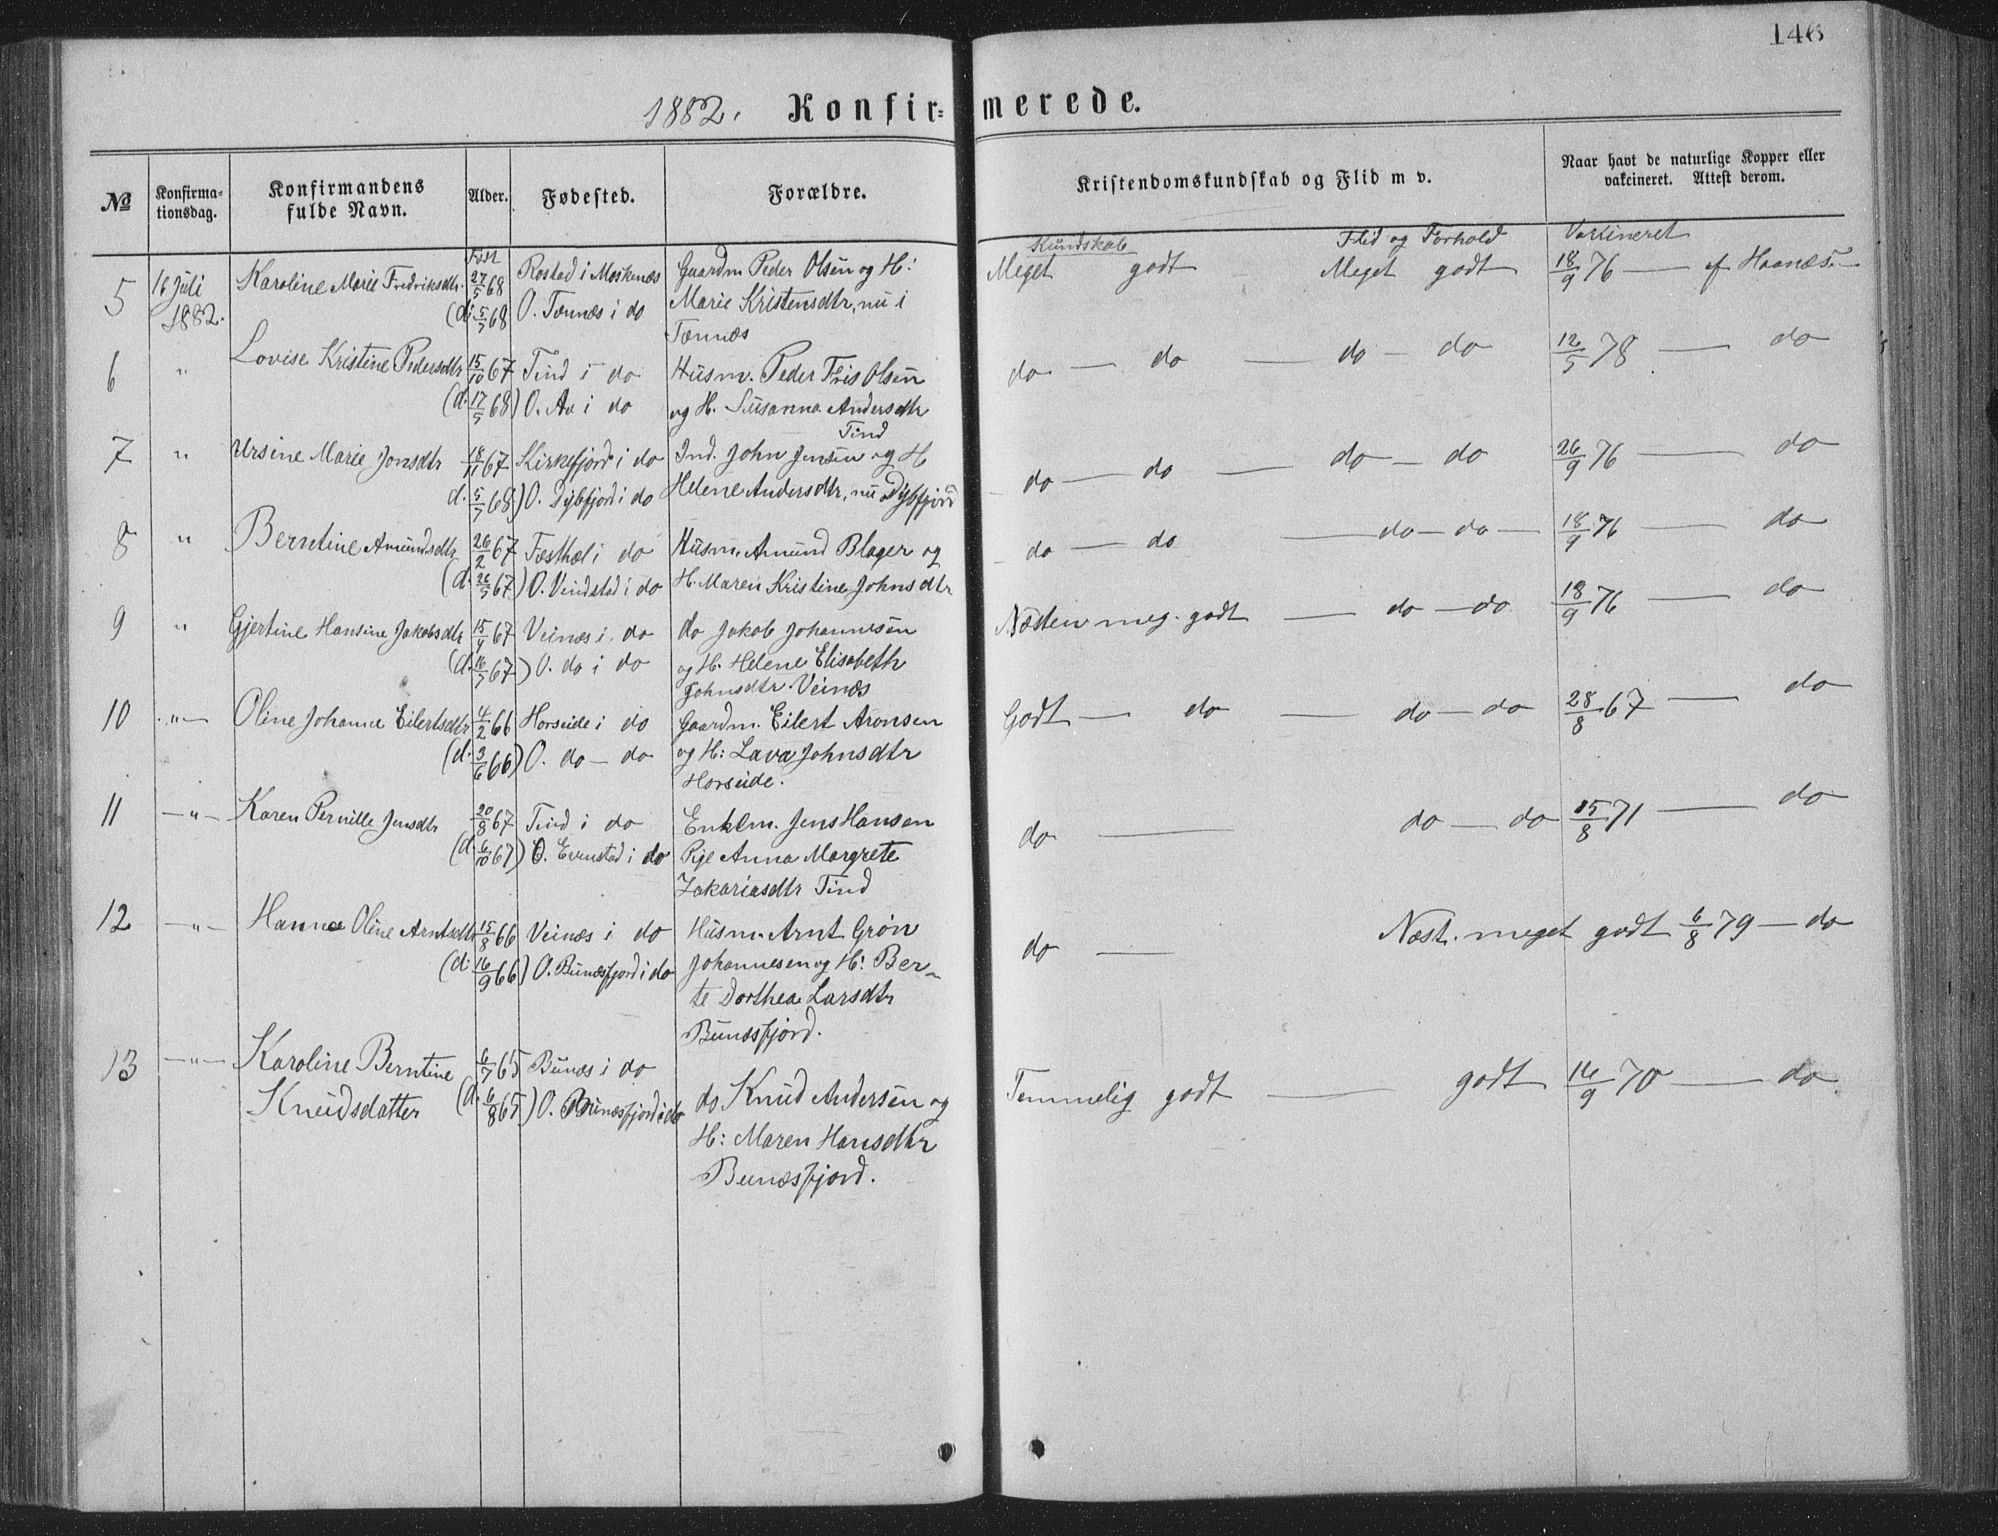 146
1882. Konfir= merede.
№ Konfirma-tionsdag. Konfirmandens fulde Navn. Alder. Fødested. Forældre. Kristendomskundskab og Flid m v. Naar havt de naturlige Kopper eller vakcineret. Attest derom.
Født Kundskab Flid og Forhold Vaccineret
5 16 Juli Karoline Marie Fredriksdtr. 27/5 68 Rostad i Moskenæs Gaardm Peder Olsen og H: Meget godt Meget godt 18/9 76 — af Haanæs. —
1882. (d: 5/7 68 O. Tønnæs i do Marie Kristensdtr, nu i
Tønnæs
6 " Lovise Kristine Pedersdtr 15/10 67 Tind i do Husm. Peder Fris Olsen do — do — do — do 12/5 78 — do
(d. 17/5 68) O. Aa i do og H. Susanna Andersdtr
Tind
7 " Ursine Marie Jonsdtr 18/11 67 Kirkefjord i do Ind. John Jensen og H do — do — do — do 26/9 76 — do
d. 5/7 68) O. Dybfjord i do Helene Andersdtr, nu Dybfjord
8 " Berntine Amundsdtr 26/2 67 Fæsthæl i do Husm. Amund Blager og do — do — do — do — 18/9 76 — do
(d. 26/5 67) O. Vindstad i do H. Maren Kristine Johnsdtr
9 " Gjertine Hansine Jakobsdtr 15/4 67 Veinæs i do do Jakob Johannesen Næsten meg. godt — do — do 18/9 76 — do
(d. 16/7 67) O. do i do og H. Helene Elisabeth
Johnsdtr Veinæs
10 — " — Oline Johanne Eilertsdtr 4/2 66 Horseide i do Gaardm. Eilert Aronsen Godt — do — do — do 28/8 67 — do
(d. 3/6 66) O. do — do og H: Lava Johnsdtr
Horseide.
11 — " — Karen Pernille Jensdtr 20/8 67 Tind i do Enkem. Jens Hansen do — do — do 15/8 71 — do
(d. 6/10 67) O. Evenstad i do Pige Anna Margrete
Zakariasdtr Tind
12 — " — Hanna Oline Arntsdtr 15/8 66 Veinæs i do Husm. Arnt Grøn do — Næst. meget godt 6/8 79 — do
(d. 16/9 66) O. Bunæsfjord i do Johannesen og H: Ber-
te Dorthea Larsdtr
Bunæsfjord.
13 — " — Karoline Berntine 6/7 65 Bunæs i do
Knudsdatter (d. 6/8 65) O. Bunæsfjord i do do Knud Andersen og Temmelig godt — godt 16/9 70 — do
H: Maren Hansdtr
Bunæsfjord.